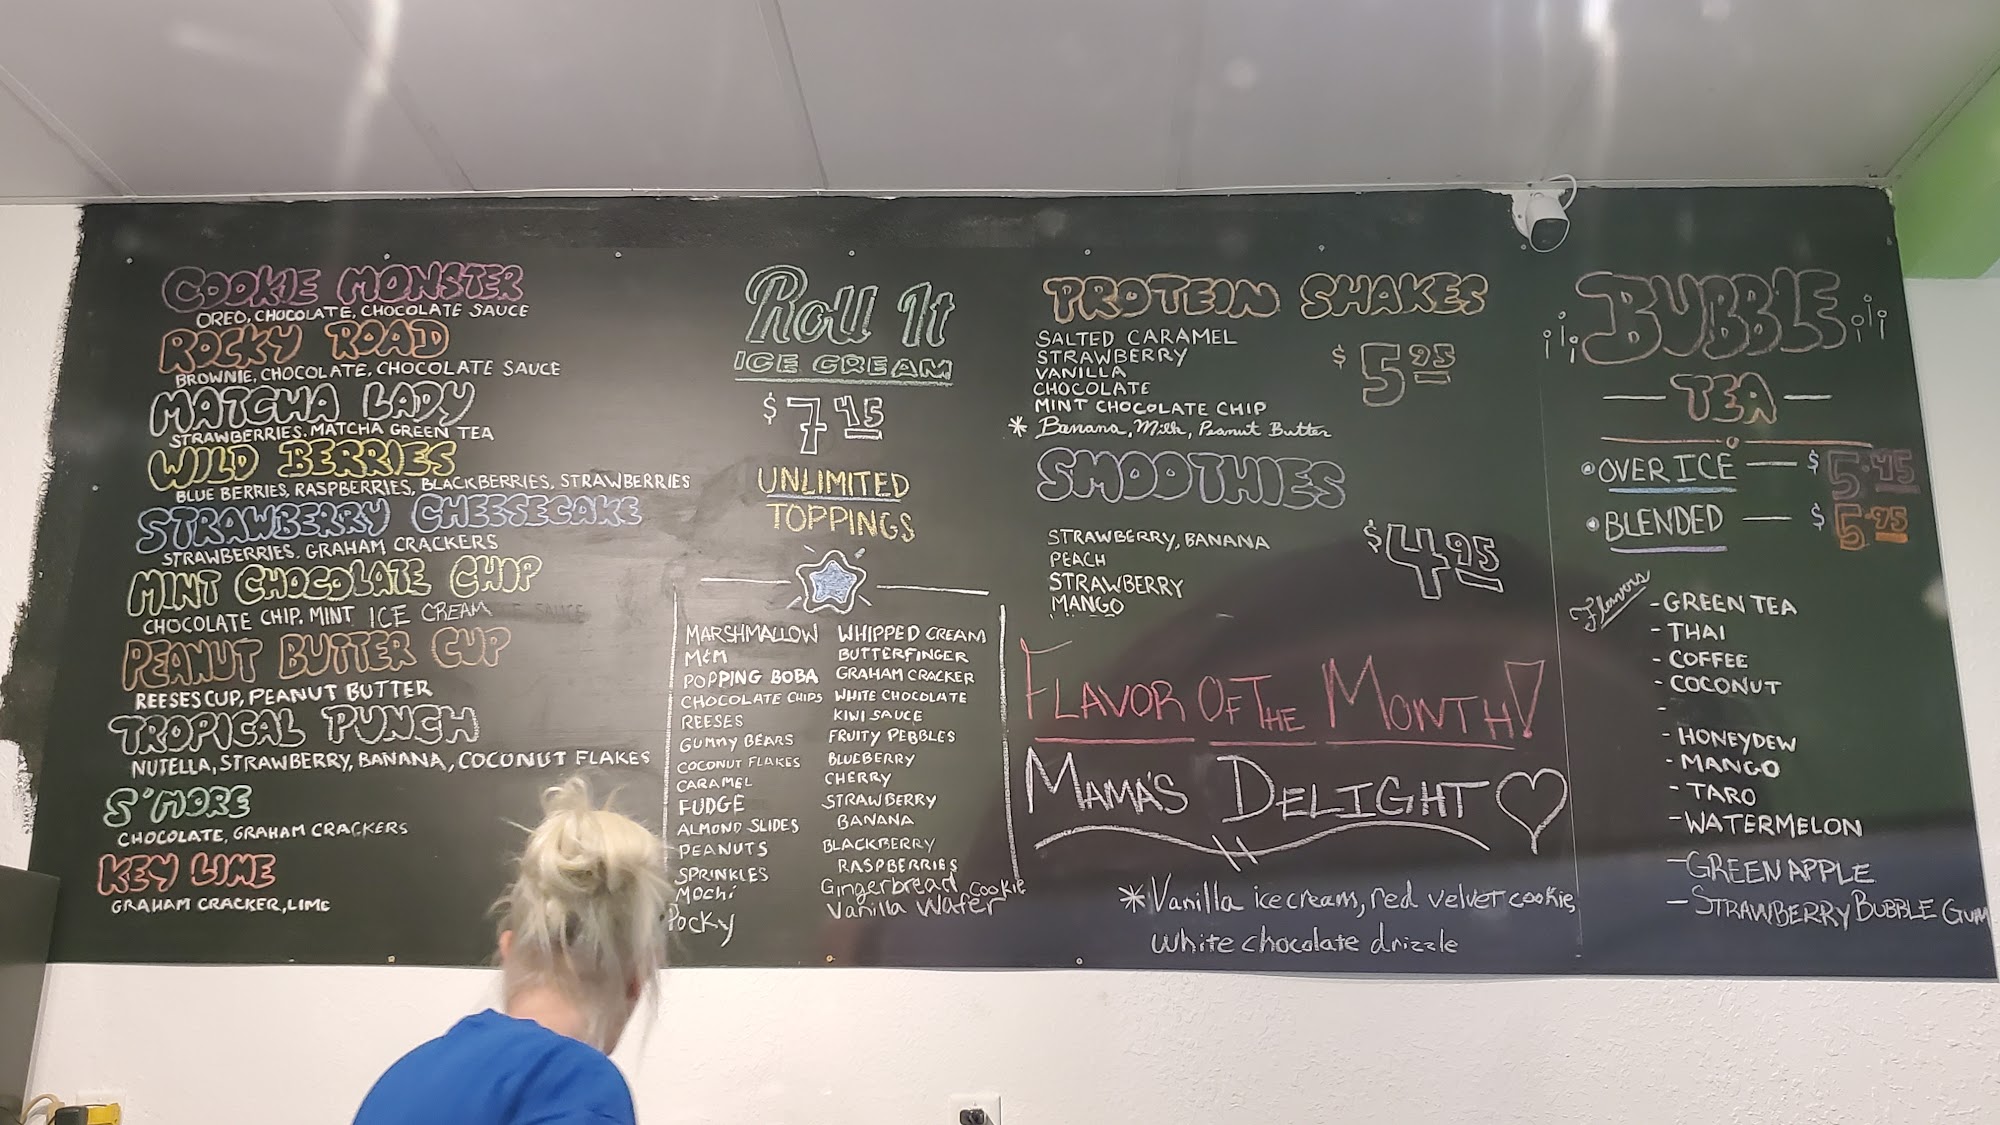 COOKIE MONSTER
OREO, CHOCOLATE, CHOCOLATE SAUCE
ROCKY ROAD
BROWNIE, CHOCOLATE, CHOCOLATE SAUCE
MATCHA LADY
STRAWBERRIES. MATCHA GREEN TEA
WILD BERRIES
BLUE BERRIES, RASPBERRIES, BLACKBERRIES, STRAWBERRIES
STRAWBERRY CHEESECAKE
STRAWBERRIES. GRAHAM CRACKERS
MINT CHOCOLATE CHIP
CHOCOLATE CHIP. MINT ICE CREAM
PEANUT BUTTER CUP
REESES CUP, PEANUT BUTTER
TROPICAL PUNCH
NUTELLA, STRAWBERRY, BANANA, COCONUT FLAKES
S'MORE
CHOCOLATE, GRAHAM CRACKERS
KEY LIME
GRAHAM CRACKER, LIME
Roll It
ICE CREAM
$7.45
UNLIMITED
TOPPINGS
MARSHMALLOW
M&M
POPPING BOBA
CHOCOLATE CHIPS
REESES
GUMMY BEARS
COCONUT FLAKES
CARAMEL
FUDGE
ALMOND SLIDES
PEANUTS
SPRINKLES
Mochi
Pocky
WHIPPED CREAM
BUTTERFINGER
GRAHAM CRACKER
WHITE CHOCOLATE
KIWI SAUCE
FRUITY PEBBLES
BLUEBERRY
CHERRY
STRAWBERRY
BANANA
BLACKBERRY
RASPBERRIES
Gingerbread Cookie
Vanilla Wafer
PROTEIN SHAKES
SALTED CARAMEL
STRAWBERRY
VANILLA
CHOCOLATE
MINT CHOCOLATE CHIP
* Banana, Milk, Peanut Butter
$5.95
SMOOTHIES
STRAWBERRY, BANANA
PEACH
STRAWBERRY
MANGO
$4.95
FLAVOR OF THE MONTH!
MAMA'S DELIGHT
* Vanilla ice cream, red velvet cookie,
white chocolate drizzle
BUBBLE
TEA
OVER ICE — $5.45
BLENDED — $5.95
Flavors
- GREEN TEA
- THAI
- COFFEE
- COCONUT
-
- HONEYDEW
- MANGO
- TARO
- WATERMELON
- GREEN APPLE
- STRAWBERRY BUBBLE GUM